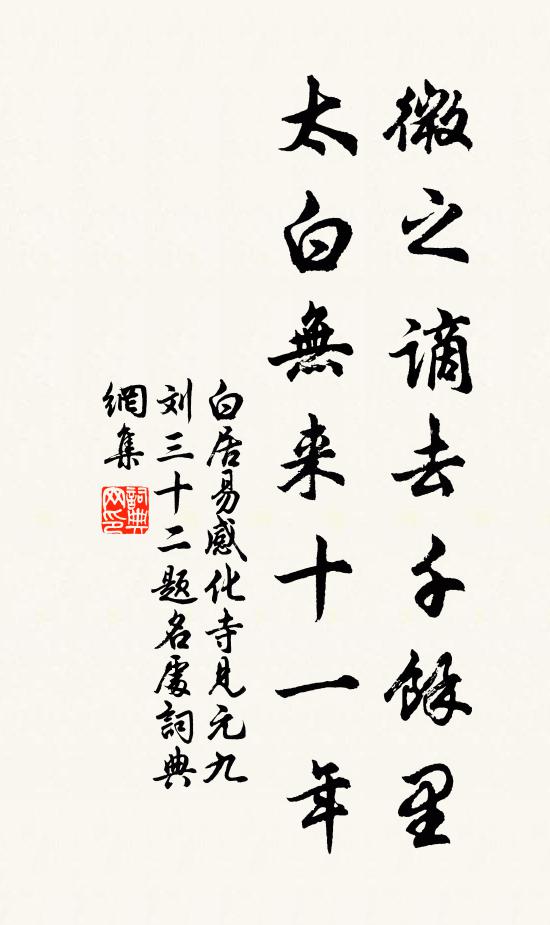 微之謫去千餘里
太白無来十一年
白居易感化寺見元九
刘三十二題名處詞典
網集
詞典
网印